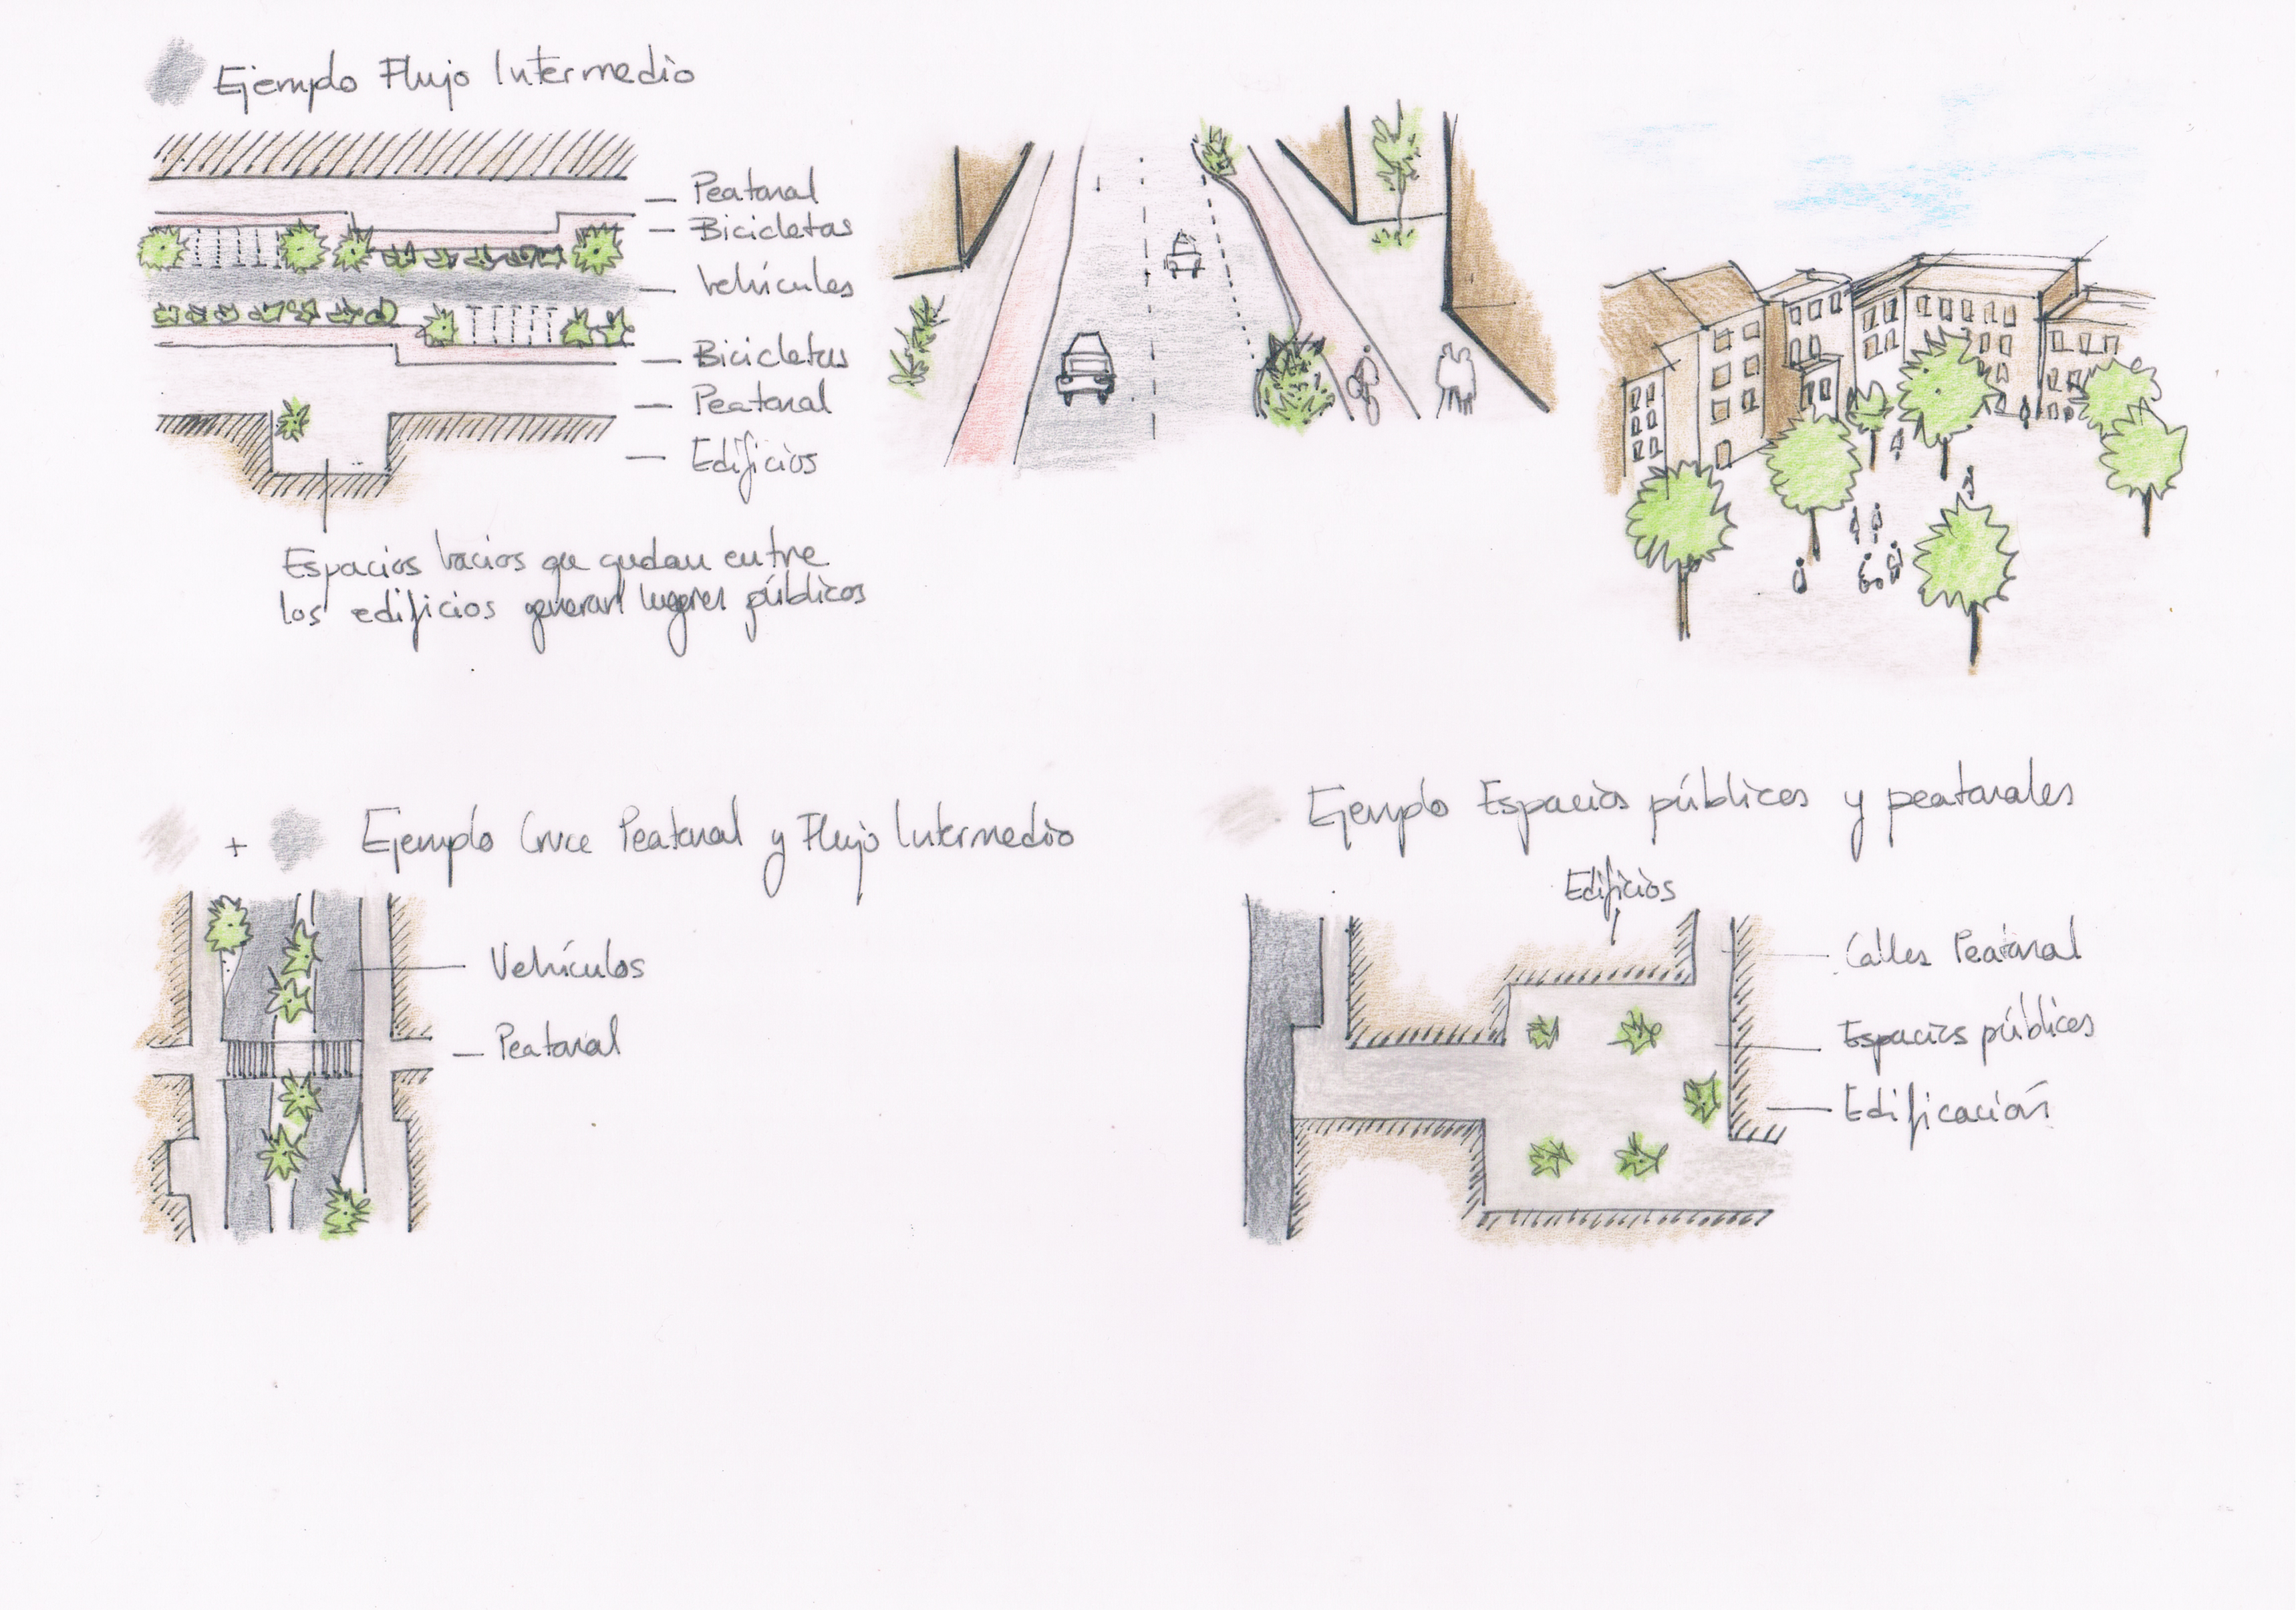 Ejemplo Flujo Intermedio
Peatonal
Bicicletas
Vehículos
Bicicletas
Peatonal
Edificios
Espacios vacios que quedan entre
los edificios generan lugares públicos
+ Ejemplo Cruce Peatonal y Flujo Intermedio
Vehículos
Peatonal
Ejemplo Espacios públicos y peatonales
Edificios
Calles Peatonal
Espacios públicos
Edificación